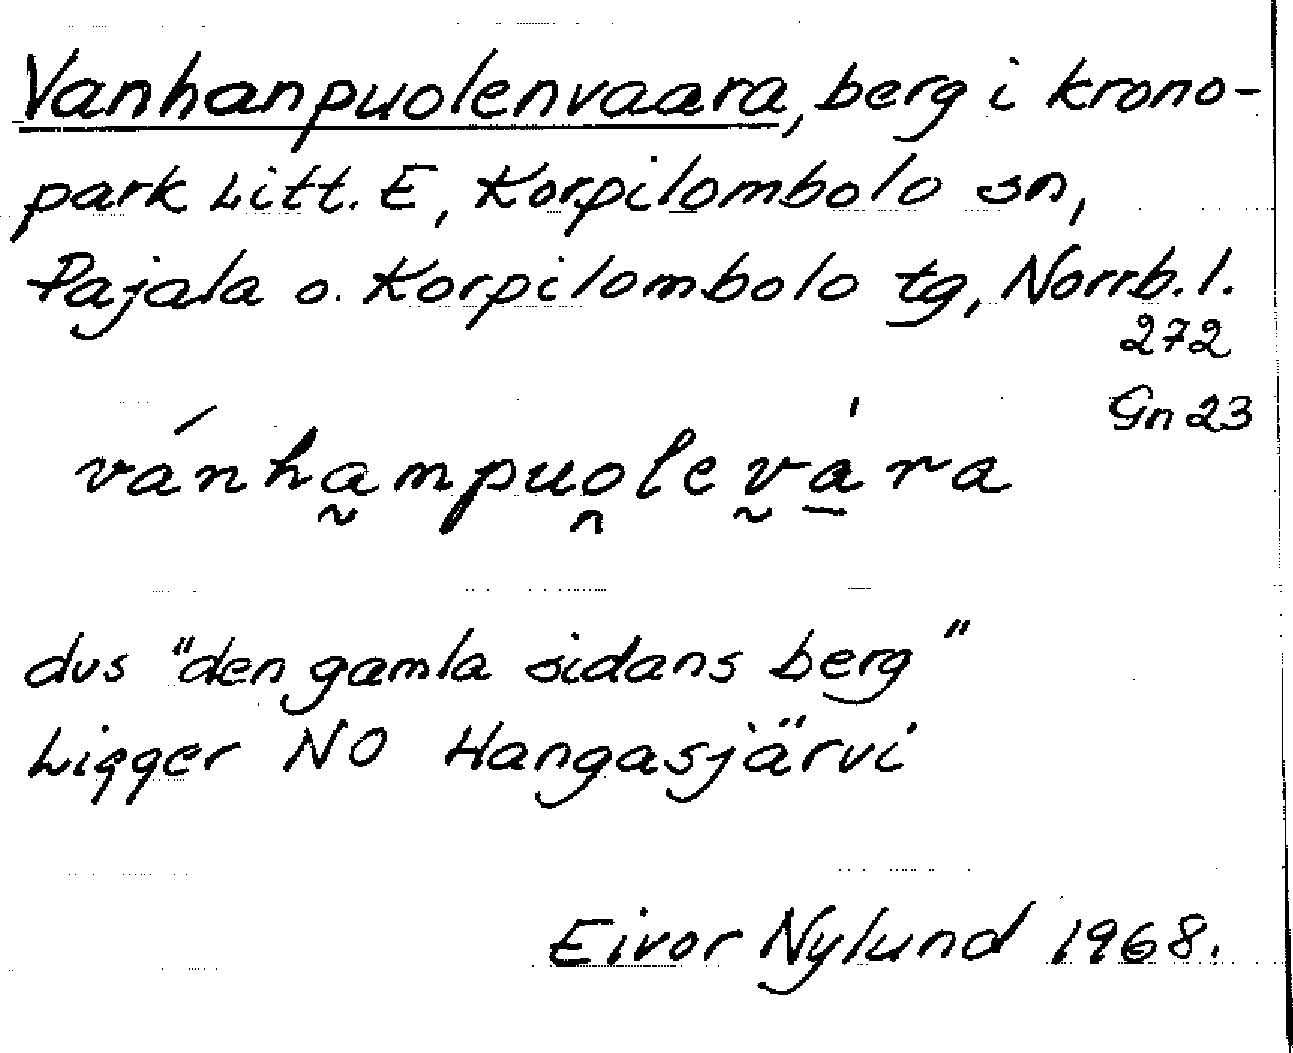 Vanhanpuolenvaara, berg i krono-
park Litt. E, Korpilombolo sn,
Pajala o. Korpilombolo tg, Norrb. l.
272
Gn 23
vánha̰mpuo̯lev̰á̱ra
dvs "den gamla sidans berg"
Ligger NO Hangasjärvi
Eivor Nylund 1968.